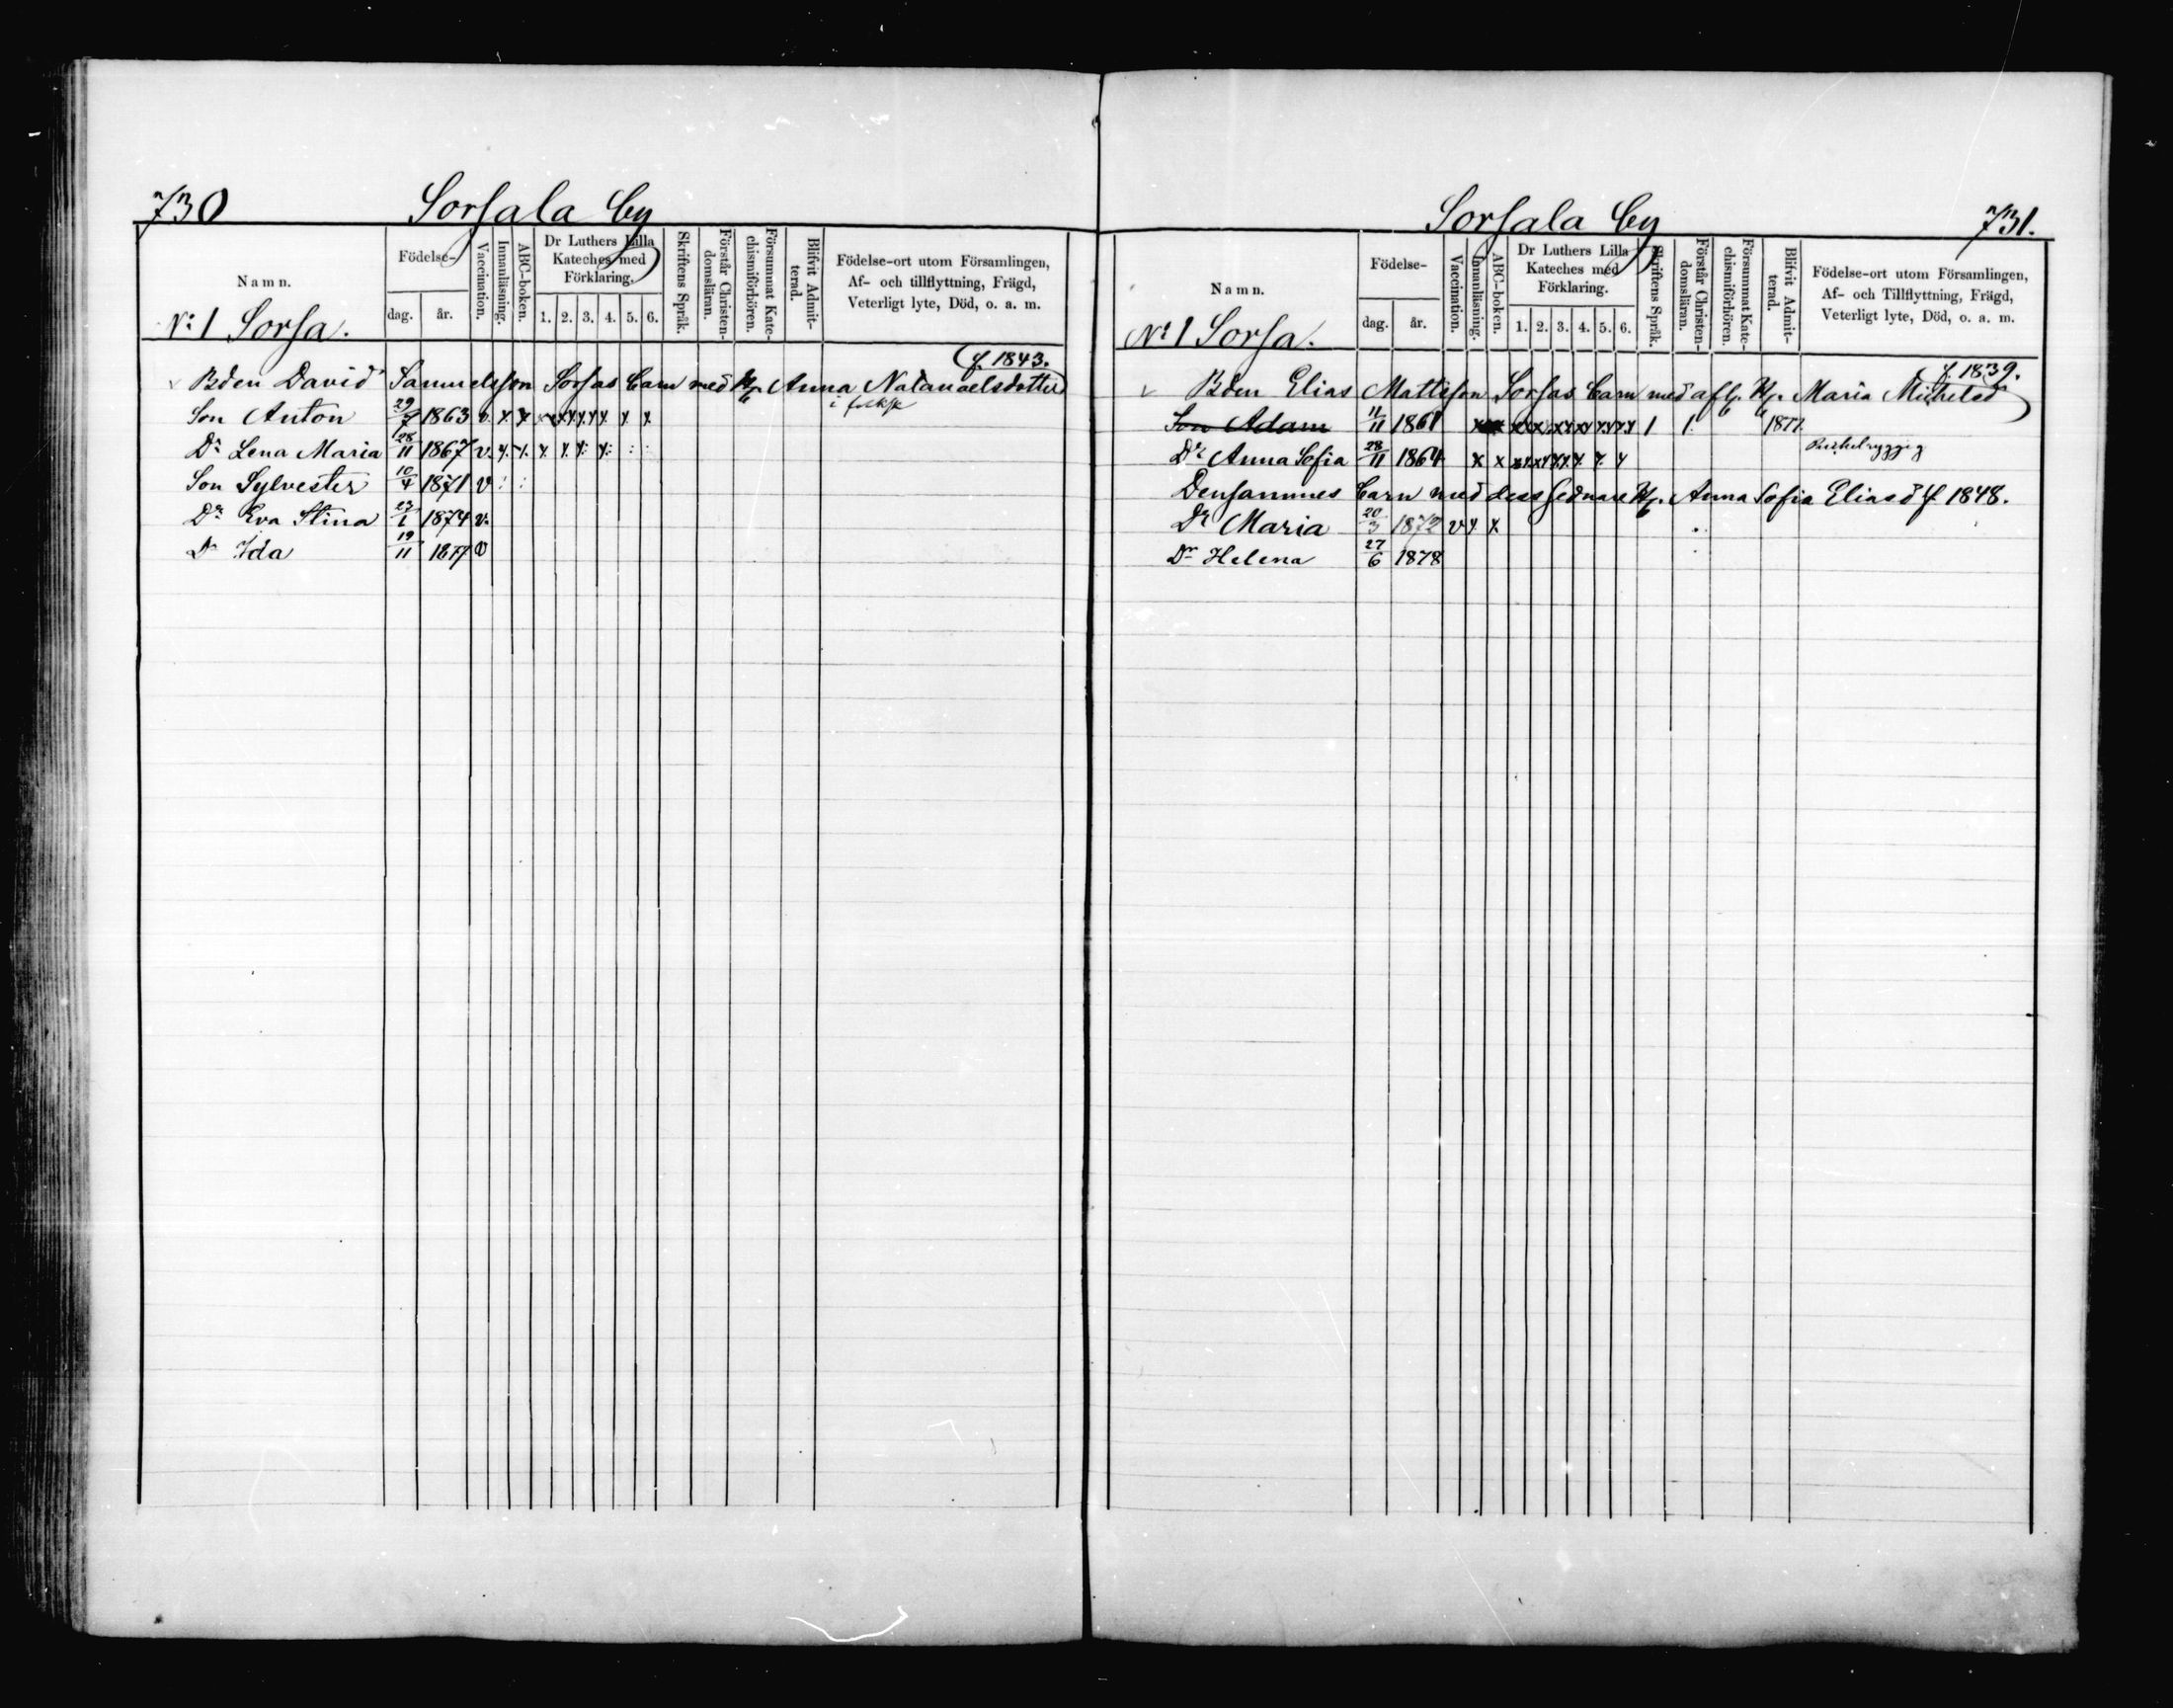 730 Sorsala by
Namn. Födelse- dag. år. Vaccination. Innanläsning. ABC-boken. Dr Luthers Lilla Kateches med Förklaring. 1. 2. 3. 4. 5. 6. Skriftens Språk. Förstår Christendomsläran. Försummat Katechismiförhören. Blifvit Admitterad. Födelse-ort utom Församlingen, Af- och tillflyttning, Frägd, Veterligt lyte, Död, o. a. m.
N:o 1 Sorsa.
f. 1843.
Bden David Samuelsson Sorsas barn med H. Anna Natanaelsdotter
Son Anton 29/7 1863 v. x x x x x x x x i folksk
Dr Lena Maria 28/11 1867 v. x x x x x x
Son Sylvester 10/4 1871 v : :
Dr Eva Stina 27/1 1874 v.
Dr Ida 19/11 1877 v
Sorsala by 731.
Namn. Födelse- dag. år. Vaccination. Innanläsning. ABC-boken. Dr Luthers Lilla Kateches med Förklaring. 1. 2. 3. 4. 5. 6. Skriftens Språk. Förstår Christendomsläran. Försummat Katechismiförhören. Blifvit Admitterad. Födelse-ort utom Församlingen, Af- och Tillflyttning, Frägd, Veterligt lyte, Död, o. a. m.
N:o 1 Sorsa.
f. 1839.
Bden Elias Mattsson Sorsas barn med afl. H. Maria Michelsd
Son Adam 11/11 1861 1 1. 1877.
Dr Anna Sofia 28/11 1864 x x
Densammes barn med dess sednare H. Anna Sofia Eliasd f. 1848.
Dr Maria 20/3 1872 v x x
Dr Helena 27/6 1878